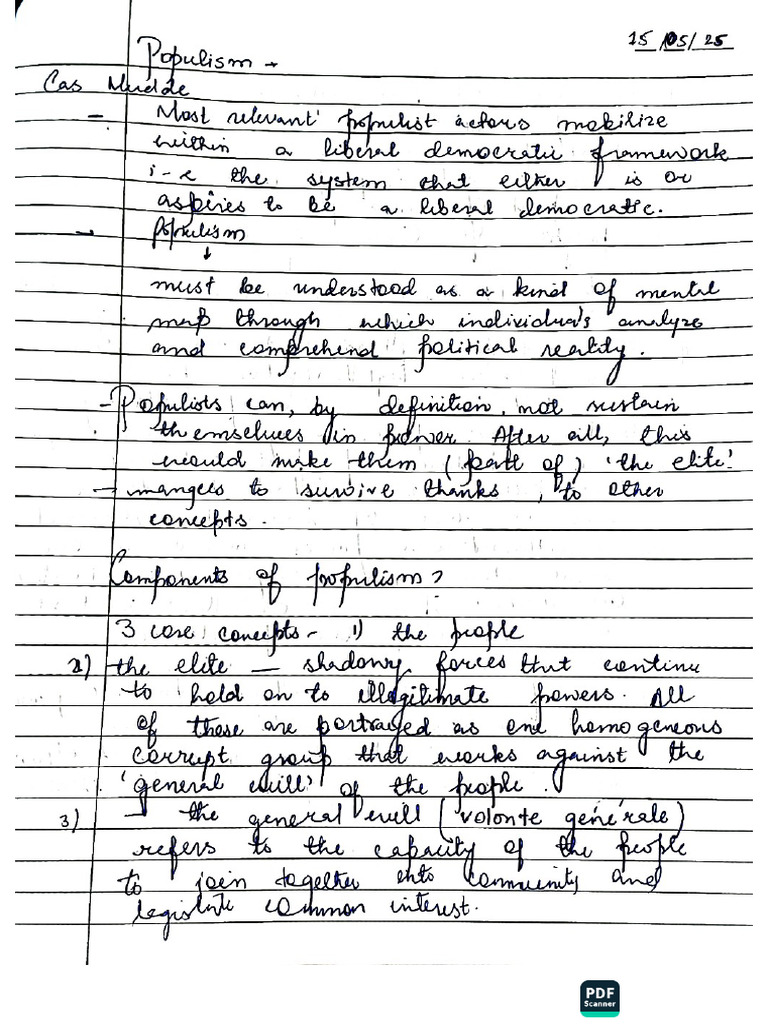 15/05/25
Populism -
Cas Mudde
- Most relevant populist actors mobilize
within a liberal democratic framework
i-e the system that either is or
aspires to be a liberal democratic.
- Populism
↓
must be understood as a kind of mental
map through which individuals analyze
and comprehend political reality.
- Populists can, by definition, not sustain
themselves in power. After all, this
would make them (part of) 'the elite'.
- manges to survive thanks, to other
concepts.
Components of populism?
3 core concepts - 1) the people
2) the elite — shadowy forces that continu
to hold on to illegitimate powers. All
of these are portrayed as one homogeneous
corrupt group that works against the
'general will' of the people.
3) → the general will (volonte générale)
refers to the capacity of the people
to join together into community and
legislate common interest.
PDF
Scanner